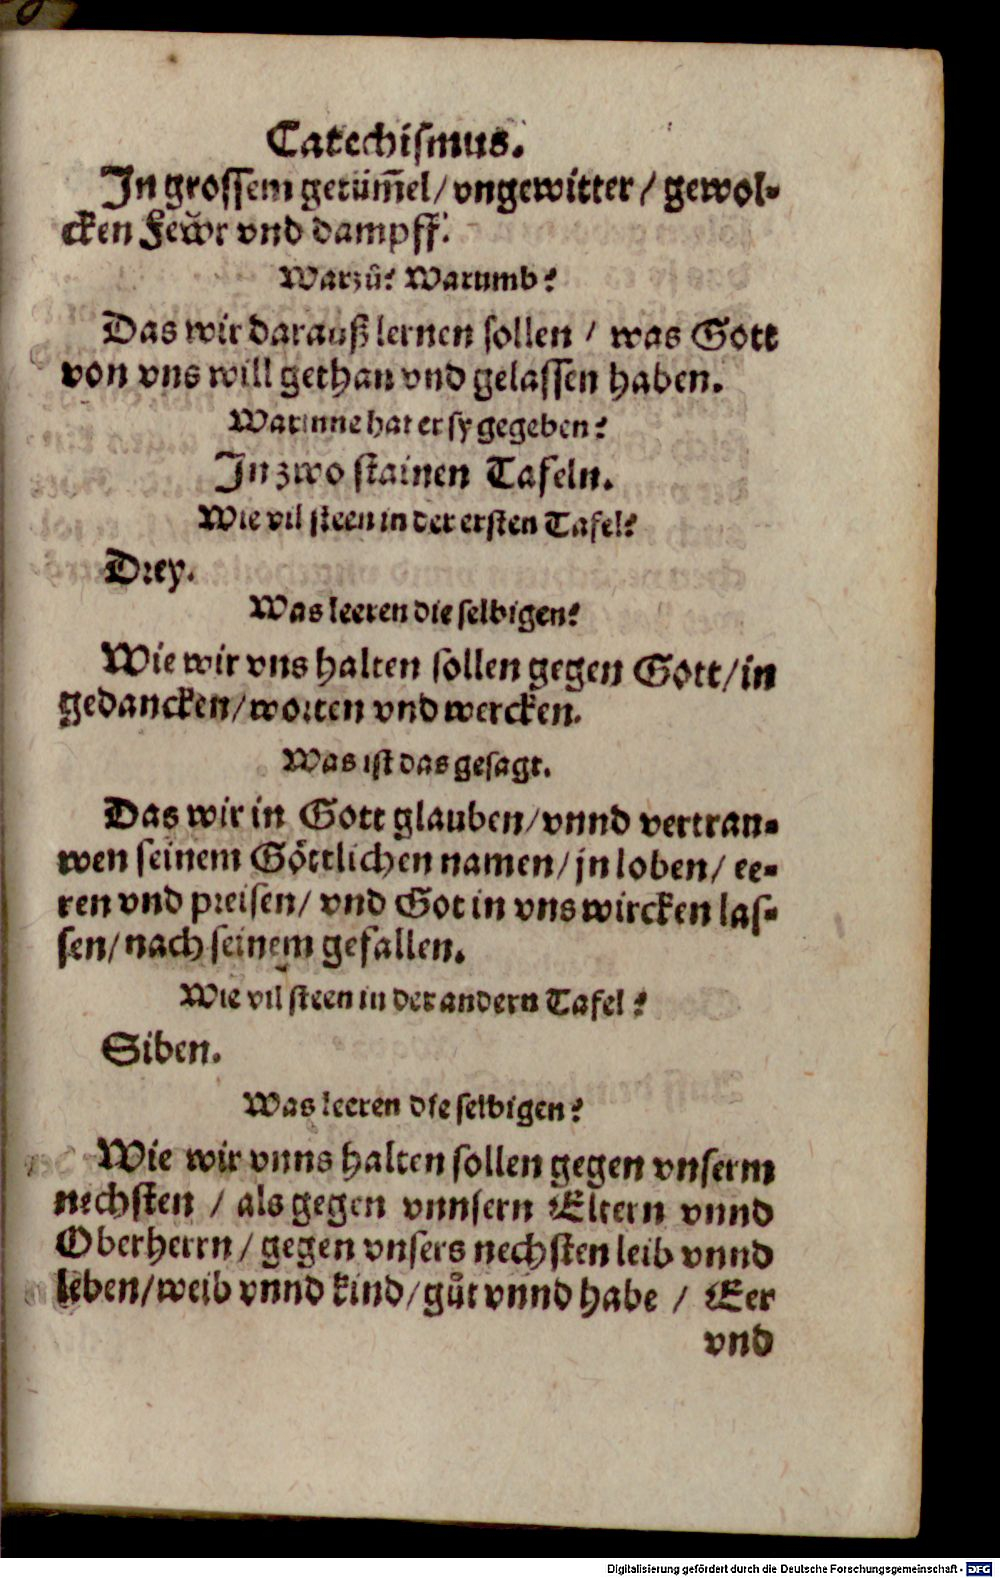 Catechismus.
In grossem getüm̃el / vngewitter / gewol-
cken Fewr vnd dampff.
Warzů? Warumb?
Das wir darauß lernen sollen / was Gott
von vns will gethan vnd gelassen haben.
Warinne hat er sy gegeben?
In zwo stainen Tafeln.
Wie vil steen in der ersten Tafel?
Drey.
Was leeren die selbigen?
Wie wir vns halten sollen gegen Gott / in
gedancken / worten vnd wercken.
Was ist das gesagt.
Das wir in Gott glauben / vnnd vertraw-
wen seinem Göttlichen namen / jn loben / ee-
ren vnd preisen / vnd Got in vns wircken las-
sen / nach seinem gefallen.
Wie vil steen in der andern Tafel?
Siben.
Was leeren die selbigen?
Wie wir vnns halten sollen gegen vnserm
nechsten / als gegen vnnsern Eltern vnnd
Oberherrn / gegen vnsers nechsten leib vnnd
leben / weib vnnd kind / gůt vnnd habe / Eer
vnd
Digitalisierung gefördert durch die Deutsche Forschungsgemeinschaft - DFG